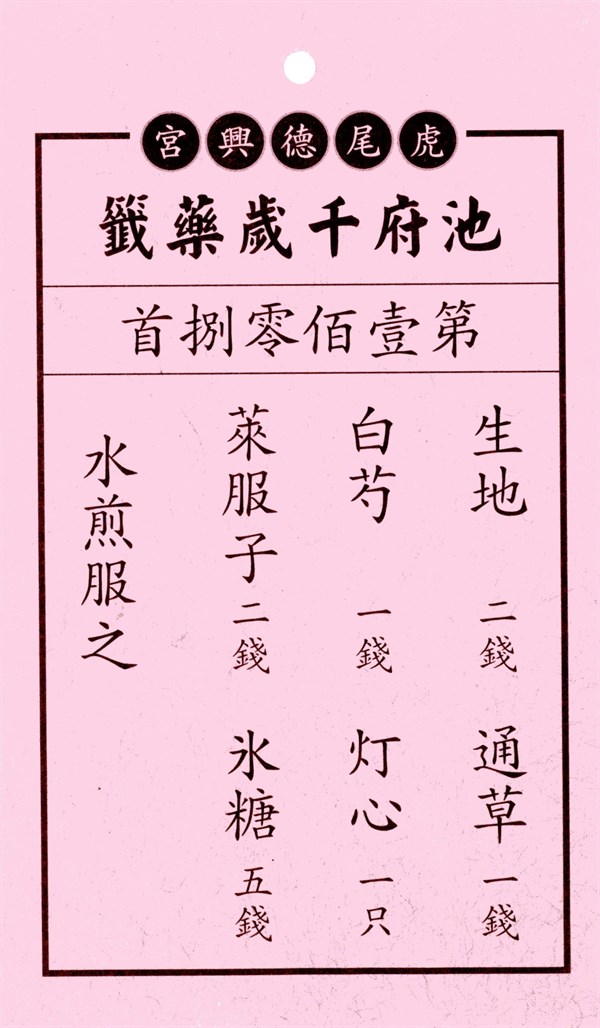 虎尾德興宮
池府千歲藥籤
第壹佰零捌首
生地 二錢 通草 一錢
白芍 一錢 灯心 一只
萊服子 二錢 氷糖 五錢
水煎服之